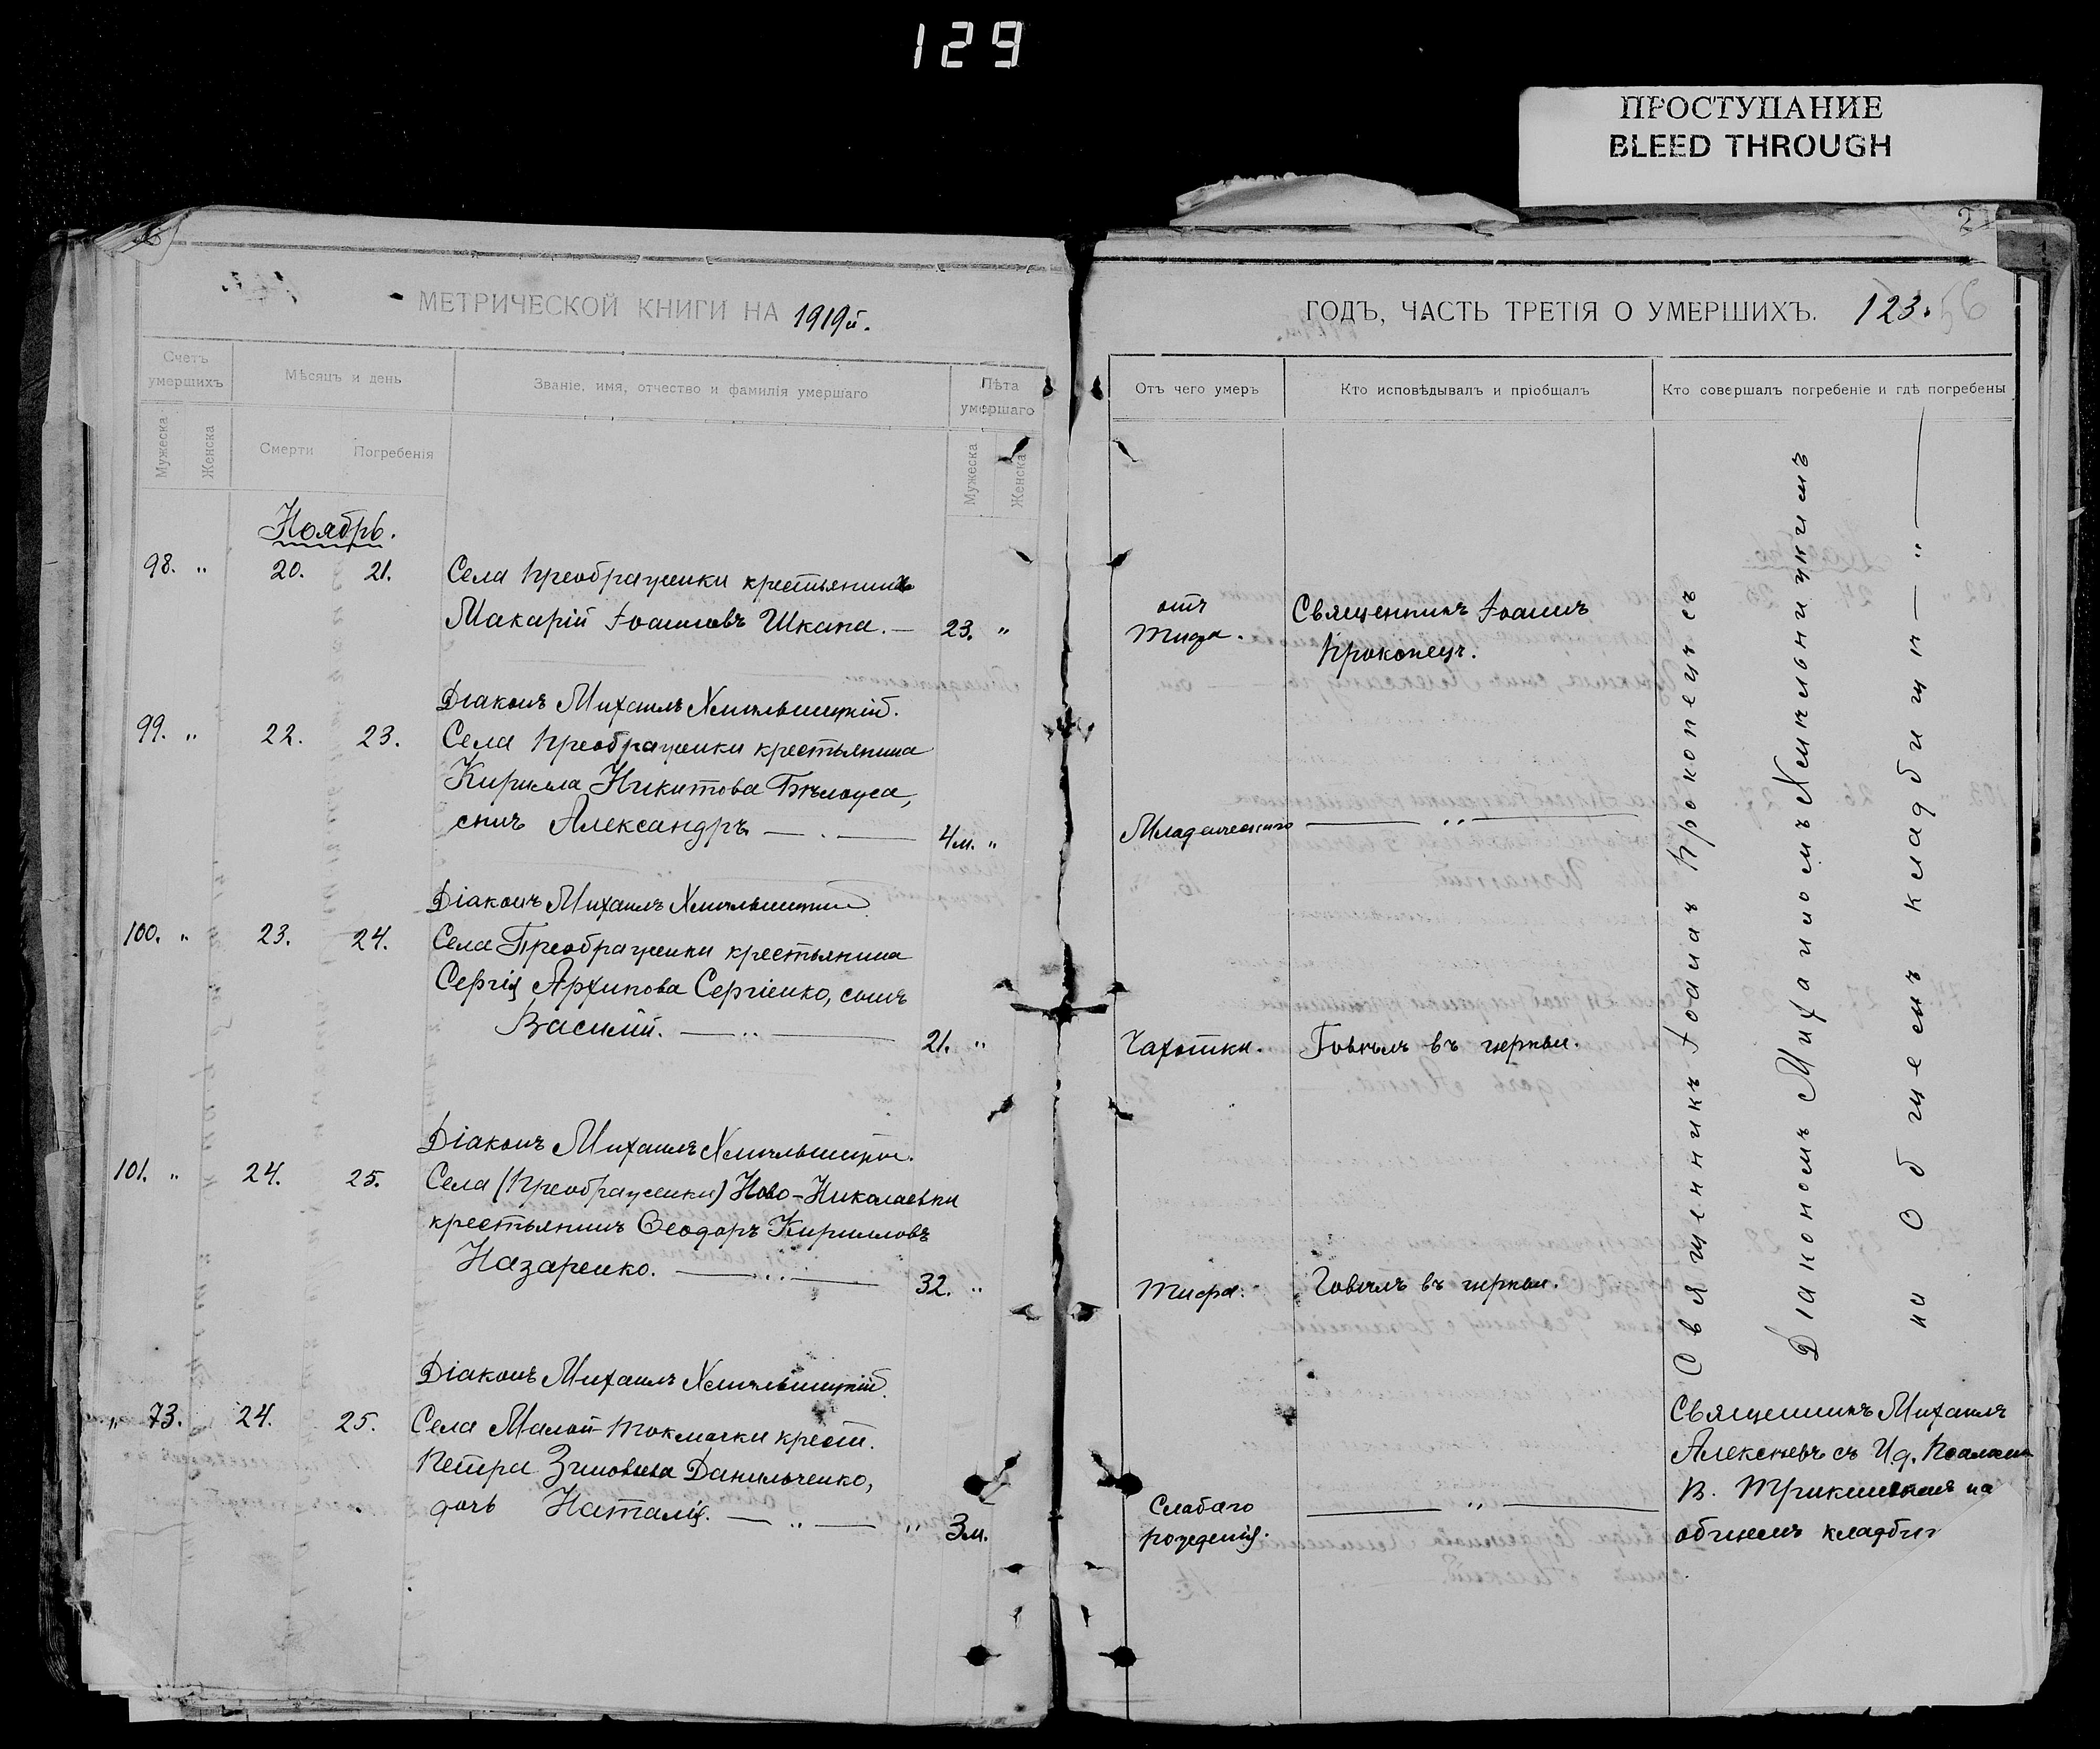 129
ПРОСТУПАНИЕ
BLEED THROUGH
МЕТРИЧЕСКОЙ КНИГИ НА 1919й.
Счетъ умершихъ
Мѣсяцъ и день
Званіе, имя, отчество и фамилія умершаго
Лѣта умершаго
Мужеска
Женска
Смерти
Погребенія
Мужеска
Женска
Ноябрь.
98. " 20. 21. Села Преображенки крестьянинъ
Макарій Іоанновъ Шкапа. — 23. "
Діаконъ Михаилъ Хмѣльницкій.
99. " 22. 23. Села Преображенки крестьянина
Кирилла Никитова Бѣлоуса,
сынъ Александръ — . — 4м. "
Діаконъ Михаилъ Хмѣльницкій
100. " 23. 24. Села Преображенки крестьянина
Сергія Архипова Сергіенко, сынъ
Василій. — .. — 21. "
Діаконъ Михаилъ Хмѣльницкій.
101. " 24. 25. Села (Преображенки) Ново-Николаевки
крестьянинъ Ѳеодоръ Кирилловъ
Назаренко. — ... — 32. "
Діаконъ Михаилъ Хмѣльницкій.
" 73. 24. 25. Села Малой-Токмачки крест.
Петра Зиновьева Данильченко,
дочь Наталія. — " — " 3м.
ГОДЪ, ЧАСТЬ ТРЕТІЯ О УМЕРШИХЪ. 123. 56
Отъ чего умеръ
Кто исповѣдывалъ и пріобщалъ
Кто совершалъ погребеніе и гдѣ погребены
отъ
Тифа.
Священникъ Іоаннъ
Прокопецъ.
Младенческаго — " —
Чахотки. Говѣлъ въ церкви.
Тифа. Говѣлъ въ церкви.
Слабаго
рожденія. — " —
Священникъ Іоаннъ Прокопецъ съ
Діакономъ Михаиломъ Хмѣльницкимъ
на Общемъ кладбищѣ — " —
Священникъ Михаилъ
Алексѣевъ съ И.д. Псаломщ
В. на
общемъ кладби